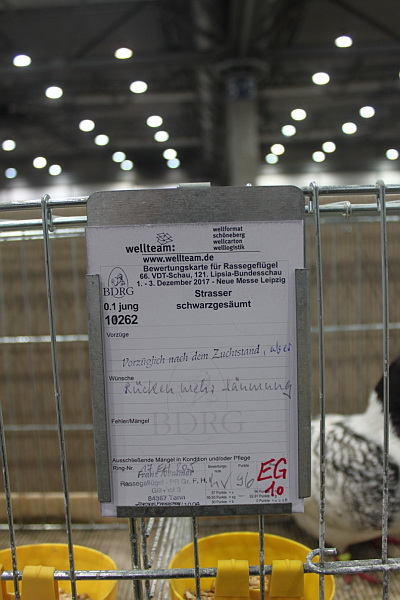 wellteam:
wellformat
schöneberg
wellcarton
welllogistik
www.wellteam.de
BDRG
Bewertungskarte für Rassegeflügel
66. VDT-Schau, 121. Lipsia-Bundesschau
1. - 3. Dezember 2017 - Neue Messe Leipzig
0.1 jung
Strasser
10262
schwarzgesäumt
Vorzüge
Vorzüglich nach dem Zuchtstand, aber
Wünsche
Rücken mehr Säumung
BDRG
Fehler/Mängel
Ausschließende Mängel in Kondition und/oder Pflege
Ring-Nr.
Punkte
96
EG
10
84367 Tann